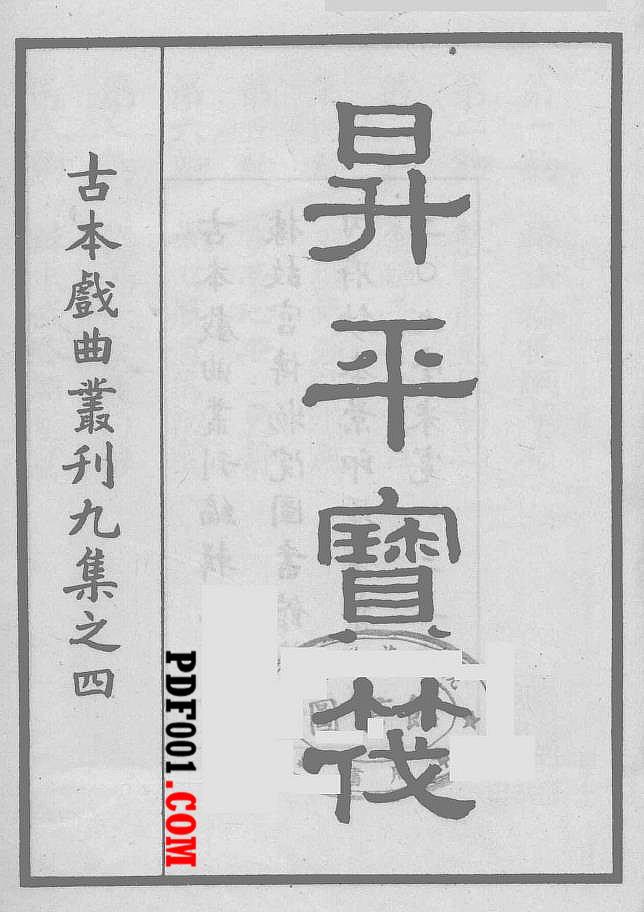 昇平寶筏
古本戲曲叢刊九集之四
PDF001.COM